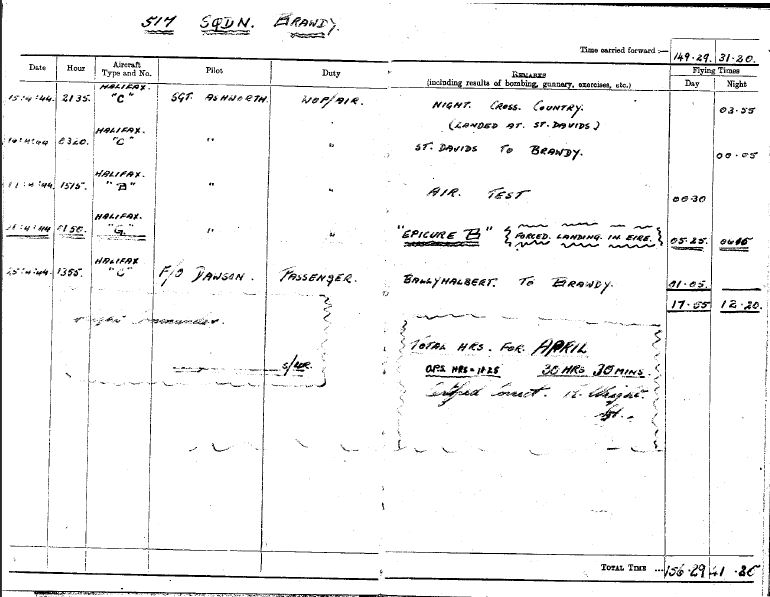 517 SQDN. BRAWDY.
Time carried forward :— 149·29. 31·20.
Date Hour Aircraft Type and No. Pilot Duty REMARKS (including results of bombing, gunnery, exercises, etc.) Flying Times Day Night
15·4·44. 2135. HALIFAX. "C" SGT. ASHWORTH. WOP/AIR. NIGHT. CROSS. COUNTRY. 03·55
(LANDED AT ST. DAVIDS)
0320. HALIFAX. "C" " " ST. DAVIDS TO BRAWDY. 00·05
1515. HALIFAX. "B" " " AIR. TEST 00·30
HALIFAX. "G" " " "EPICURE B" {FORCED. LANDING. IN. EIRE.} 05·25
25·4·44. 1355. HALIFAX "C" F/O DAWSON. PASSENGER. BALLYHALBERT. TO BRAWDY. 01·05.
12·20.
TOTAL HRS. FOR. APRIL
OPS HRS 30 HRS 30 MINS.
Certified Correct.
Sgt.
TOTAL TIME ... 156·29 41